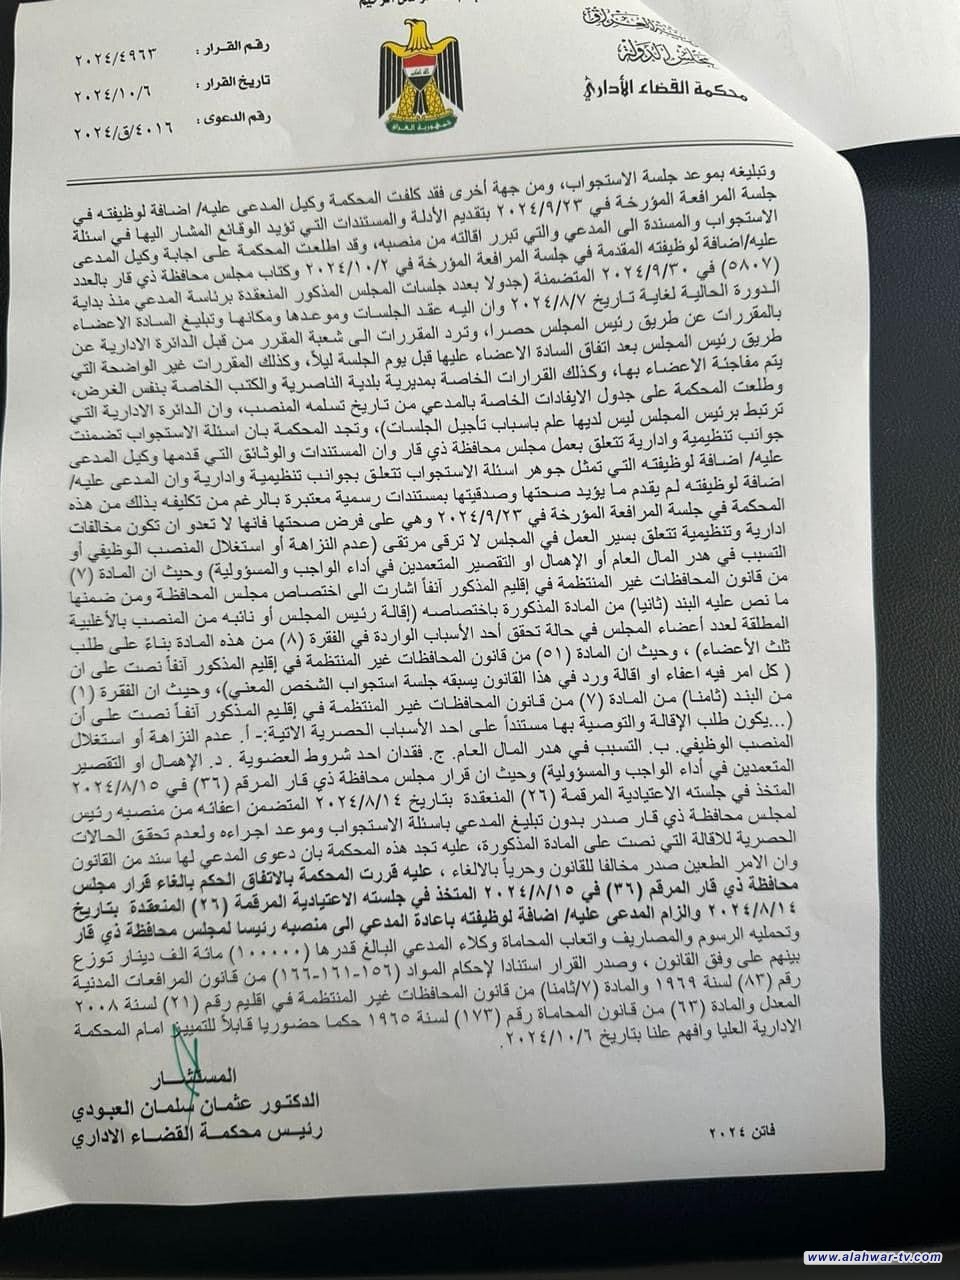 جمهورية العراق
مجلس الدولة
محكمة القضاء الأداري
رقم القرار : ٢٠٢٤/٤٩٦٣
تاريخ القرار : ٢٠٢٤/١٠/٦
رقم الدعوى : ٤٠١٦/ق/٢٠٢٤
جمهورية العراق
وتبليغه بموعد جلسة الاستجواب، ومن جهة أخرى فقد كلفت المحكمة وكيل المدعى عليه/ اضافة لوظيفته في
جلسة المرافعة المؤرخة في ٢٠٢٤/٩/٢٣ بتقديم الأدلة والمستندات التي تؤيد الوقائع المشار اليها في اسئلة
الاستجواب والمسندة الى المدعي والتي تبرر اقالته من منصبه، وقد اطلعت المحكمة على اجابة وكيل المدعى
عليه/اضافة لوظيفته المقدمة في جلسة المرافعة المؤرخة في ٢٠٢٤/١٠/٢ وكتاب مجلس محافظة ذي قار بالعدد
(٥٨٠٧) في ٢٠٢٤/٩/٣٠ المتضمنة (جدولا بعدد جلسات المجلس المذكور المنعقدة برئاسة المدعي منذ بداية
الدورة الحالية لغاية تاريخ ٢٠٢٤/٨/٧ وان اليه عقد الجلسات وموعدها ومكانها وتبليغ السادة الاعضاء
بالمقررات عن طريق رئيس المجلس حصرا، وترد المقررات الى شعبة المقرر من قبل الدائرة الادارية عن
طريق رئيس المجلس بعد اتفاق السادة الاعضاء عليها قبل يوم الجلسة ليلاً، وكذلك المقررات غير الواضحة التي
يتم مفاجئة الاعضاء بها، وكذلك القرارات الخاصة بمديرية بلدية الناصرية والكتب الخاصة بنفس الغرض،
وطلعت المحكمة على جدول الايفادات الخاصة بالمدعي من تاريخ تسلمه المنصب، وان الدائرة الادارية التي
ترتبط برئيس المجلس ليس لديها علم باسباب تأجيل الجلسات)، وتجد المحكمة بان اسئلة الاستجواب تضمنت
جوانب تنظيمية وادارية تتعلق بعمل مجلس محافظة ذي قار وان المستندات والوثائق التي قدمها وكيل المدعى
عليه/ اضافة لوظيفته التي تمثل جوهر اسئلة الاستجواب تتعلق بجوانب تنظيمية وادارية وان المدعى عليه/
اضافة لوظيفته لم يقدم ما يؤيد صحتها وصدقيتها بمستندات رسمية معتبرة بالرغم من تكليفه بذلك من هذه
المحكمة في جلسة المرافعة المؤرخة في ٢٠٢٤/٩/٢٣ وهي على فرض صحتها فانها لا تعدو ان تكون مخالفات
ادارية وتنظيمية تتعلق بسير العمل في المجلس لا ترقى مرتقى (عدم النزاهة أو استغلال المنصب الوظيفي أو
التسبب في هدر المال العام أو الإهمال او التقصير المتعمدين في أداء الواجب والمسؤولية) وحيث ان المادة (٧)
من قانون المحافظات غير المنتظمة في إقليم المذكور آنفاً اشارت الى اختصاص مجلس المحافظة ومن ضمنها
ما نص عليه البند (ثانيا) من المادة المذكورة باختصاصه (إقالة رئيس المجلس أو نائبه من المنصب بالأغلبية
المطلقة لعدد أعضاء المجلس في حالة تحقق أحد الأسباب الواردة في الفقرة (٨) من هذه المادة بناءً على طلب
ثلث الأعضاء) ، وحيث ان المادة (٥١) من قانون المحافظات غير المنتظمة في إقليم المذكور آنفاً نصت على ان
( كل امر فيه اعفاء او اقالة ورد في هذا القانون يسبقه جلسة استجواب الشخص المعني)، وحيث ان الفقرة (١)
من البند (ثامنا) من المادة (٧) من قانون المحافظات غير المنتظمة في إقليم المذكور آنفاً نصت على أن
(...يكون طلب الإقالة والتوصية بها مستنداً على احد الأسباب الحصرية الاتية:- أ. عدم النزاهة أو استغلال
المنصب الوظيفي. ب. التسبب في هدر المال العام. ج. فقدان احد شروط العضوية . د. الإهمال او التقصير
المتعمدين في أداء الواجب والمسؤولية) وحيث ان قرار مجلس محافظة ذي قار المرقم (٣٦) في ٢٠٢٤/٨/١٥
المتخذ في جلسته الاعتيادية المرقمة (٢٦) المنعقدة بتاريخ ٢٠٢٤/٨/١٤ المتضمن اعفائه من منصبه رئيس
لمجلس محافظة ذي قار صدر بدون تبليغ المدعي باسئلة الاستجواب وموعد اجراءه ولعدم تحقق الحالات
الحصرية للاقالة التي نصت على المادة المذكورة، عليه تجد هذه المحكمة بان دعوى المدعي لها سند من القانون
وان الامر الطعين صدر مخالفا للقانون وحرياً بالالغاء ، عليه قررت المحكمة بالاتفاق الحكم بالغاء قرار مجلس
محافظة ذي قار المرقم (٣٦) في ٢٠٢٤/٨/١٥ المتخذ في جلسته الاعتيادية المرقمة (٢٦) المنعقدة بتاريخ
٢٠٢٤/٨/١٤ والزام المدعى عليه/ اضافة لوظيفته باعادة المدعي الى منصبه رئيسا لمجلس محافظة ذي قار
وتحميله الرسوم والمصاريف واتعاب المحاماة وكلاء المدعي البالغ قدرها (١٠٠٠٠٠) مائة الف دينار توزع
بينهم على وفق القانون ، وصدر القرار استنادا لإحكام المواد (١٥٦-١٦١-١٦٦) من قانون المرافعات المدنية
رقم (٨٣) لسنة ١٩٦٩ والمادة (٧/ثامنا) من قانون المحافظات غير المنتظمة في اقليم رقم (٢١) لسنة ٢٠٠٨
المعدل والمادة (٦٣) من قانون المحاماة رقم (١٧٣) لسنة ١٩٦٥ حكما حضوريا قابلاً للتمييز امام المحكمة
الادارية العليا وافهم علنا بتاريخ ٢٠٢٤/١٠/٦.
المستشار
الدكتور عثمان سلمان العبودي
رئيس محكمة القضاء الاداري
فاتن ٢٠٢٤
www.alahwar-tv.com